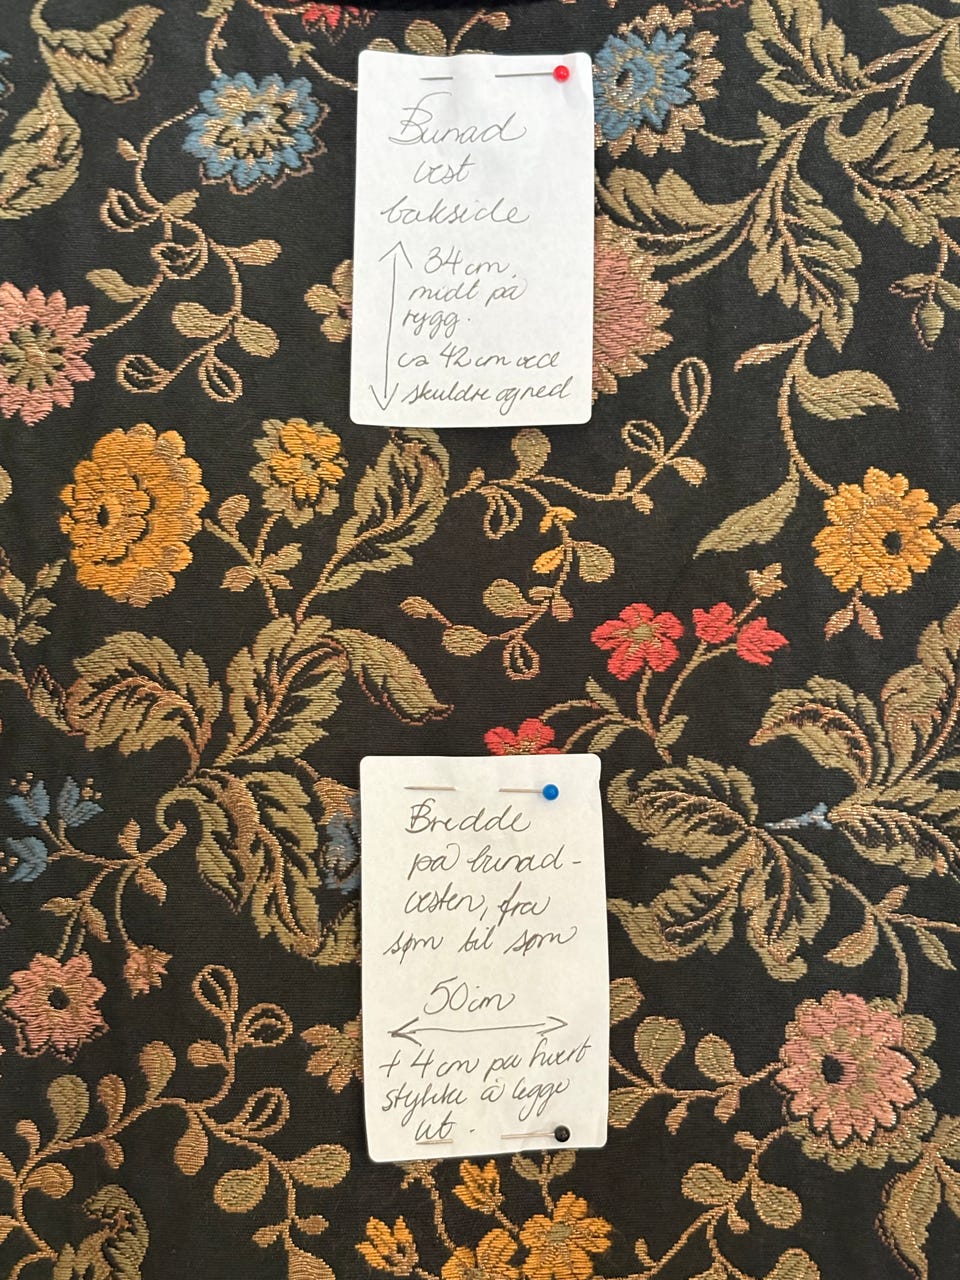 Bunad
vest
bakside
34 cm.
midt på
rygg.
ca 42 cm ved
skuldre og ned
Bredde
på bunad-
vesten, fra
søm til søm
50 cm
+ 4 cm på hvert
stykke å legge
ut.